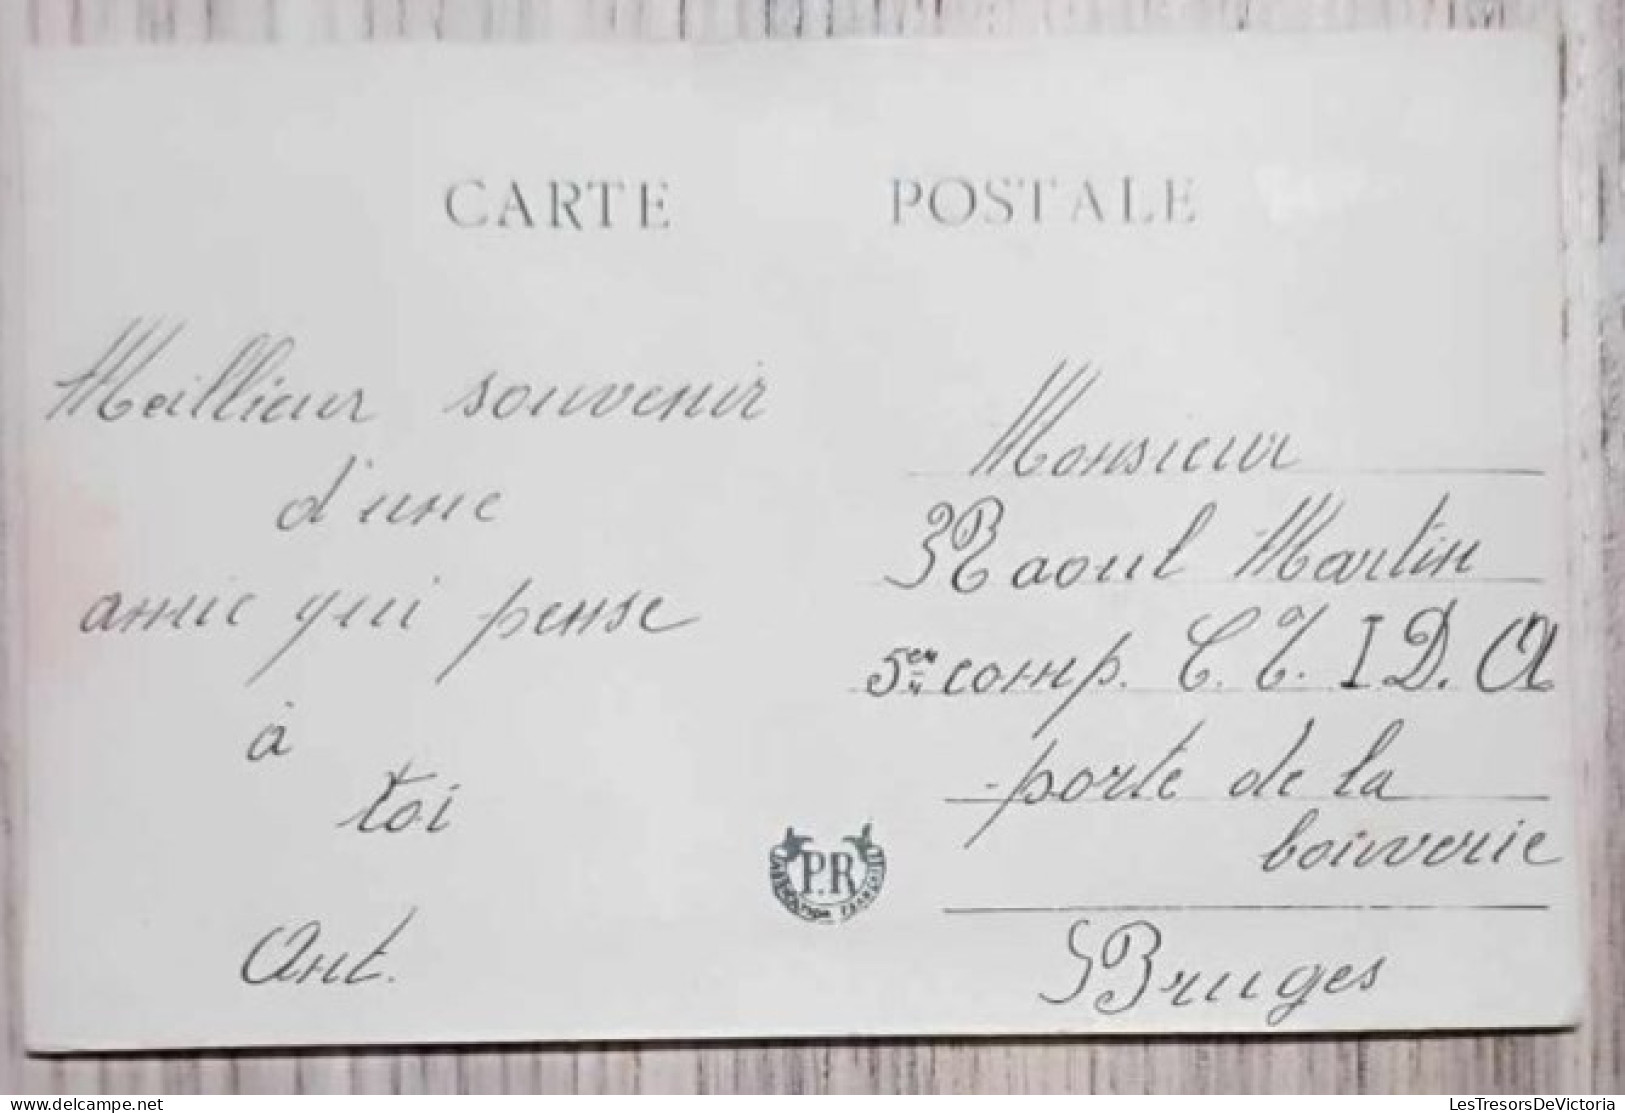 CARTE POSTALE
Meillieur souvenir
d'une
amie qui pense
à
toi
Ant.
Monsieur
Raoul Martin
5em comp. C. T. I. D. A
porte de la
boiverie
Bruges
P.R
LesTresorsDeVictoria